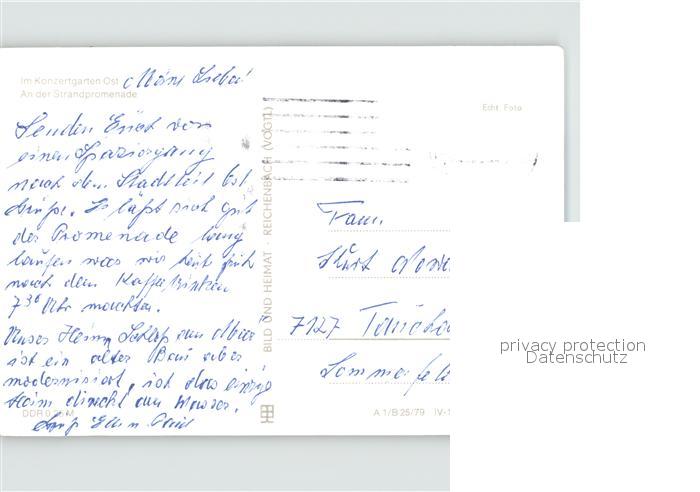 Im Konzertgarten Ost
An der Strandpromenade
Meine Lieben!
Senden Euch von
einen Spaziergang
nach dem Stadtteil Ost
Grüße. Es läßt sich gut
die Promenade lang
laufen was wir heut früh
nach dem Kaffeetrinken
7³⁰ Uhr machten.
Unser Heim Schloß am Meer
ist ein alter Bau aber
modernisiert, ist das einzige
Heim direkt am Wasser.
DDR 0,25 M
BILD UND HEIMAT · REICHENBACH (VOGTL)
Echt Foto
Fam.
Kurt
7127 Taucha
Sommerfeld
A 1/B 25/79 IV-1
privacy protection
Datenschutz